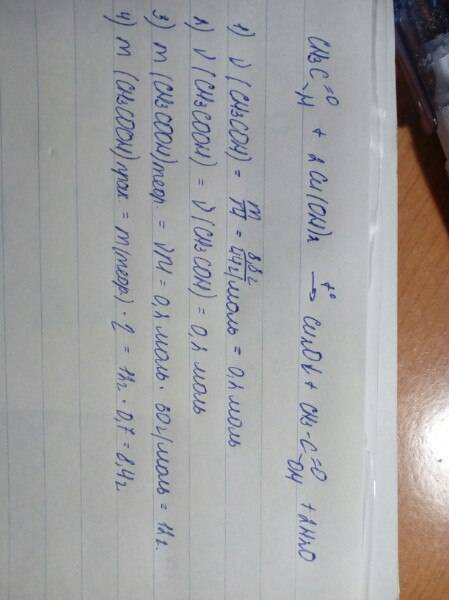 CH3C=O-H + 2Cu(OH)2 t°→ Cu2O↓ + CH3-C=O-OH + 2H2O
1) ν (CH3COH) = m/M = 8,8г/44г/моль = 0,2 моль
2) ν (CH3COOH) = ν (CH3COH) = 0,2 моль
3) m (CH3COOH)теор. = νM = 0,2 моль · 60г/моль = 12г.
4) m (CH3COOH)прак. = m(теор) · η = 12г · 0,7 = 8,4г